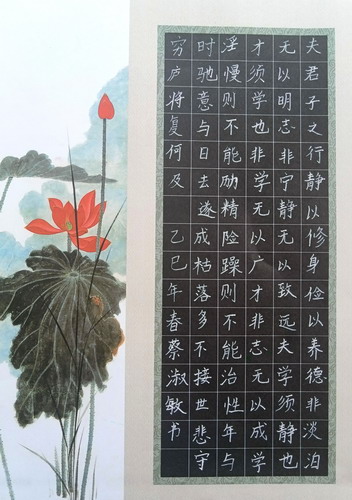 夫君子之行静以修身俭以养德非淡泊
无以明志非宁静无以致远夫学须静也
才须学也非学无以广才非志无以成学
淫慢则不能励精险躁则不能治性年与
时驰意与日去遂成枯落多不接世悲守
穷庐将复何及 乙巳年春蔡淑敏书